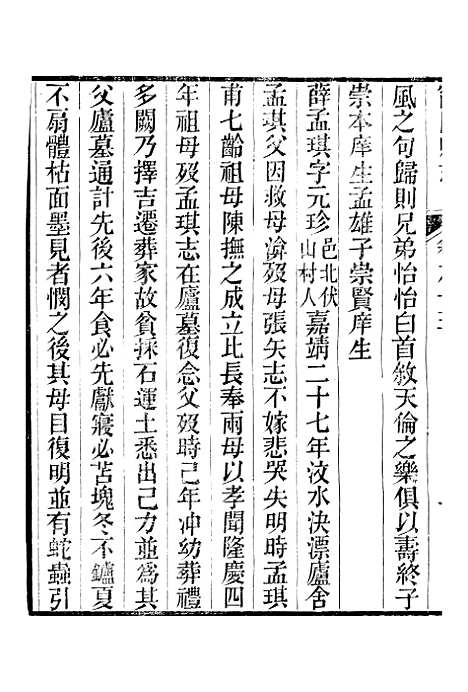 風之句歸則兄弟怡怡白首敘天倫之樂俱以壽終子
崇本庠生孟雄子崇賢庠生
薛孟琪字元珍邑北伏山村人嘉靖二十七年汶水決漂廬舍
孟琪父因救母淪歿母張矢志不嫁悲哭失明時孟琪
甫七齡祖母陳撫之成立比長奉兩母以孝聞隆慶四
年祖母歿孟琪志在廬墓復念父歿時己年冲幼葬禮
多闕乃擇吉遷葬家故貧採石運土悉出己力並為其
父廬墓通計先後六年食必先獻寢必苫塊冬不鑪夏
不扇體枯面墨見者憫之後其母目復明並有蛇蟲引